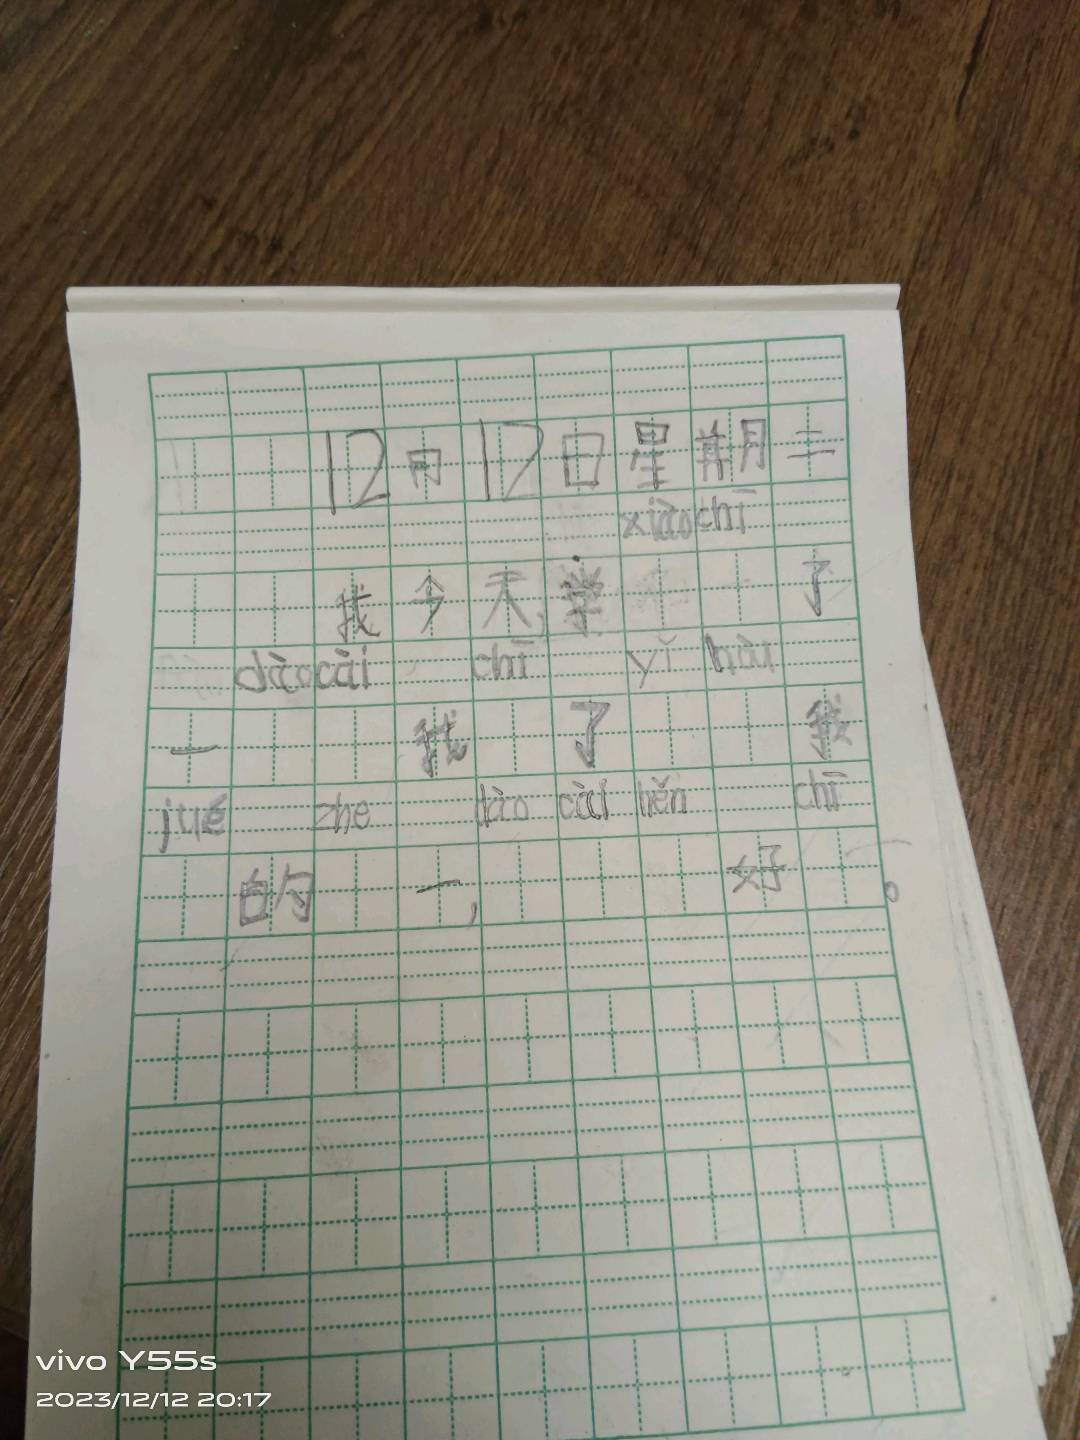 12月12日星期二
xiàochī
我今天学了
dàocài chī yǐ hòu
一我了我
jué zhe dào cài hěn chī
的一,好。
vivo Y55s
2023/12/12 20:17